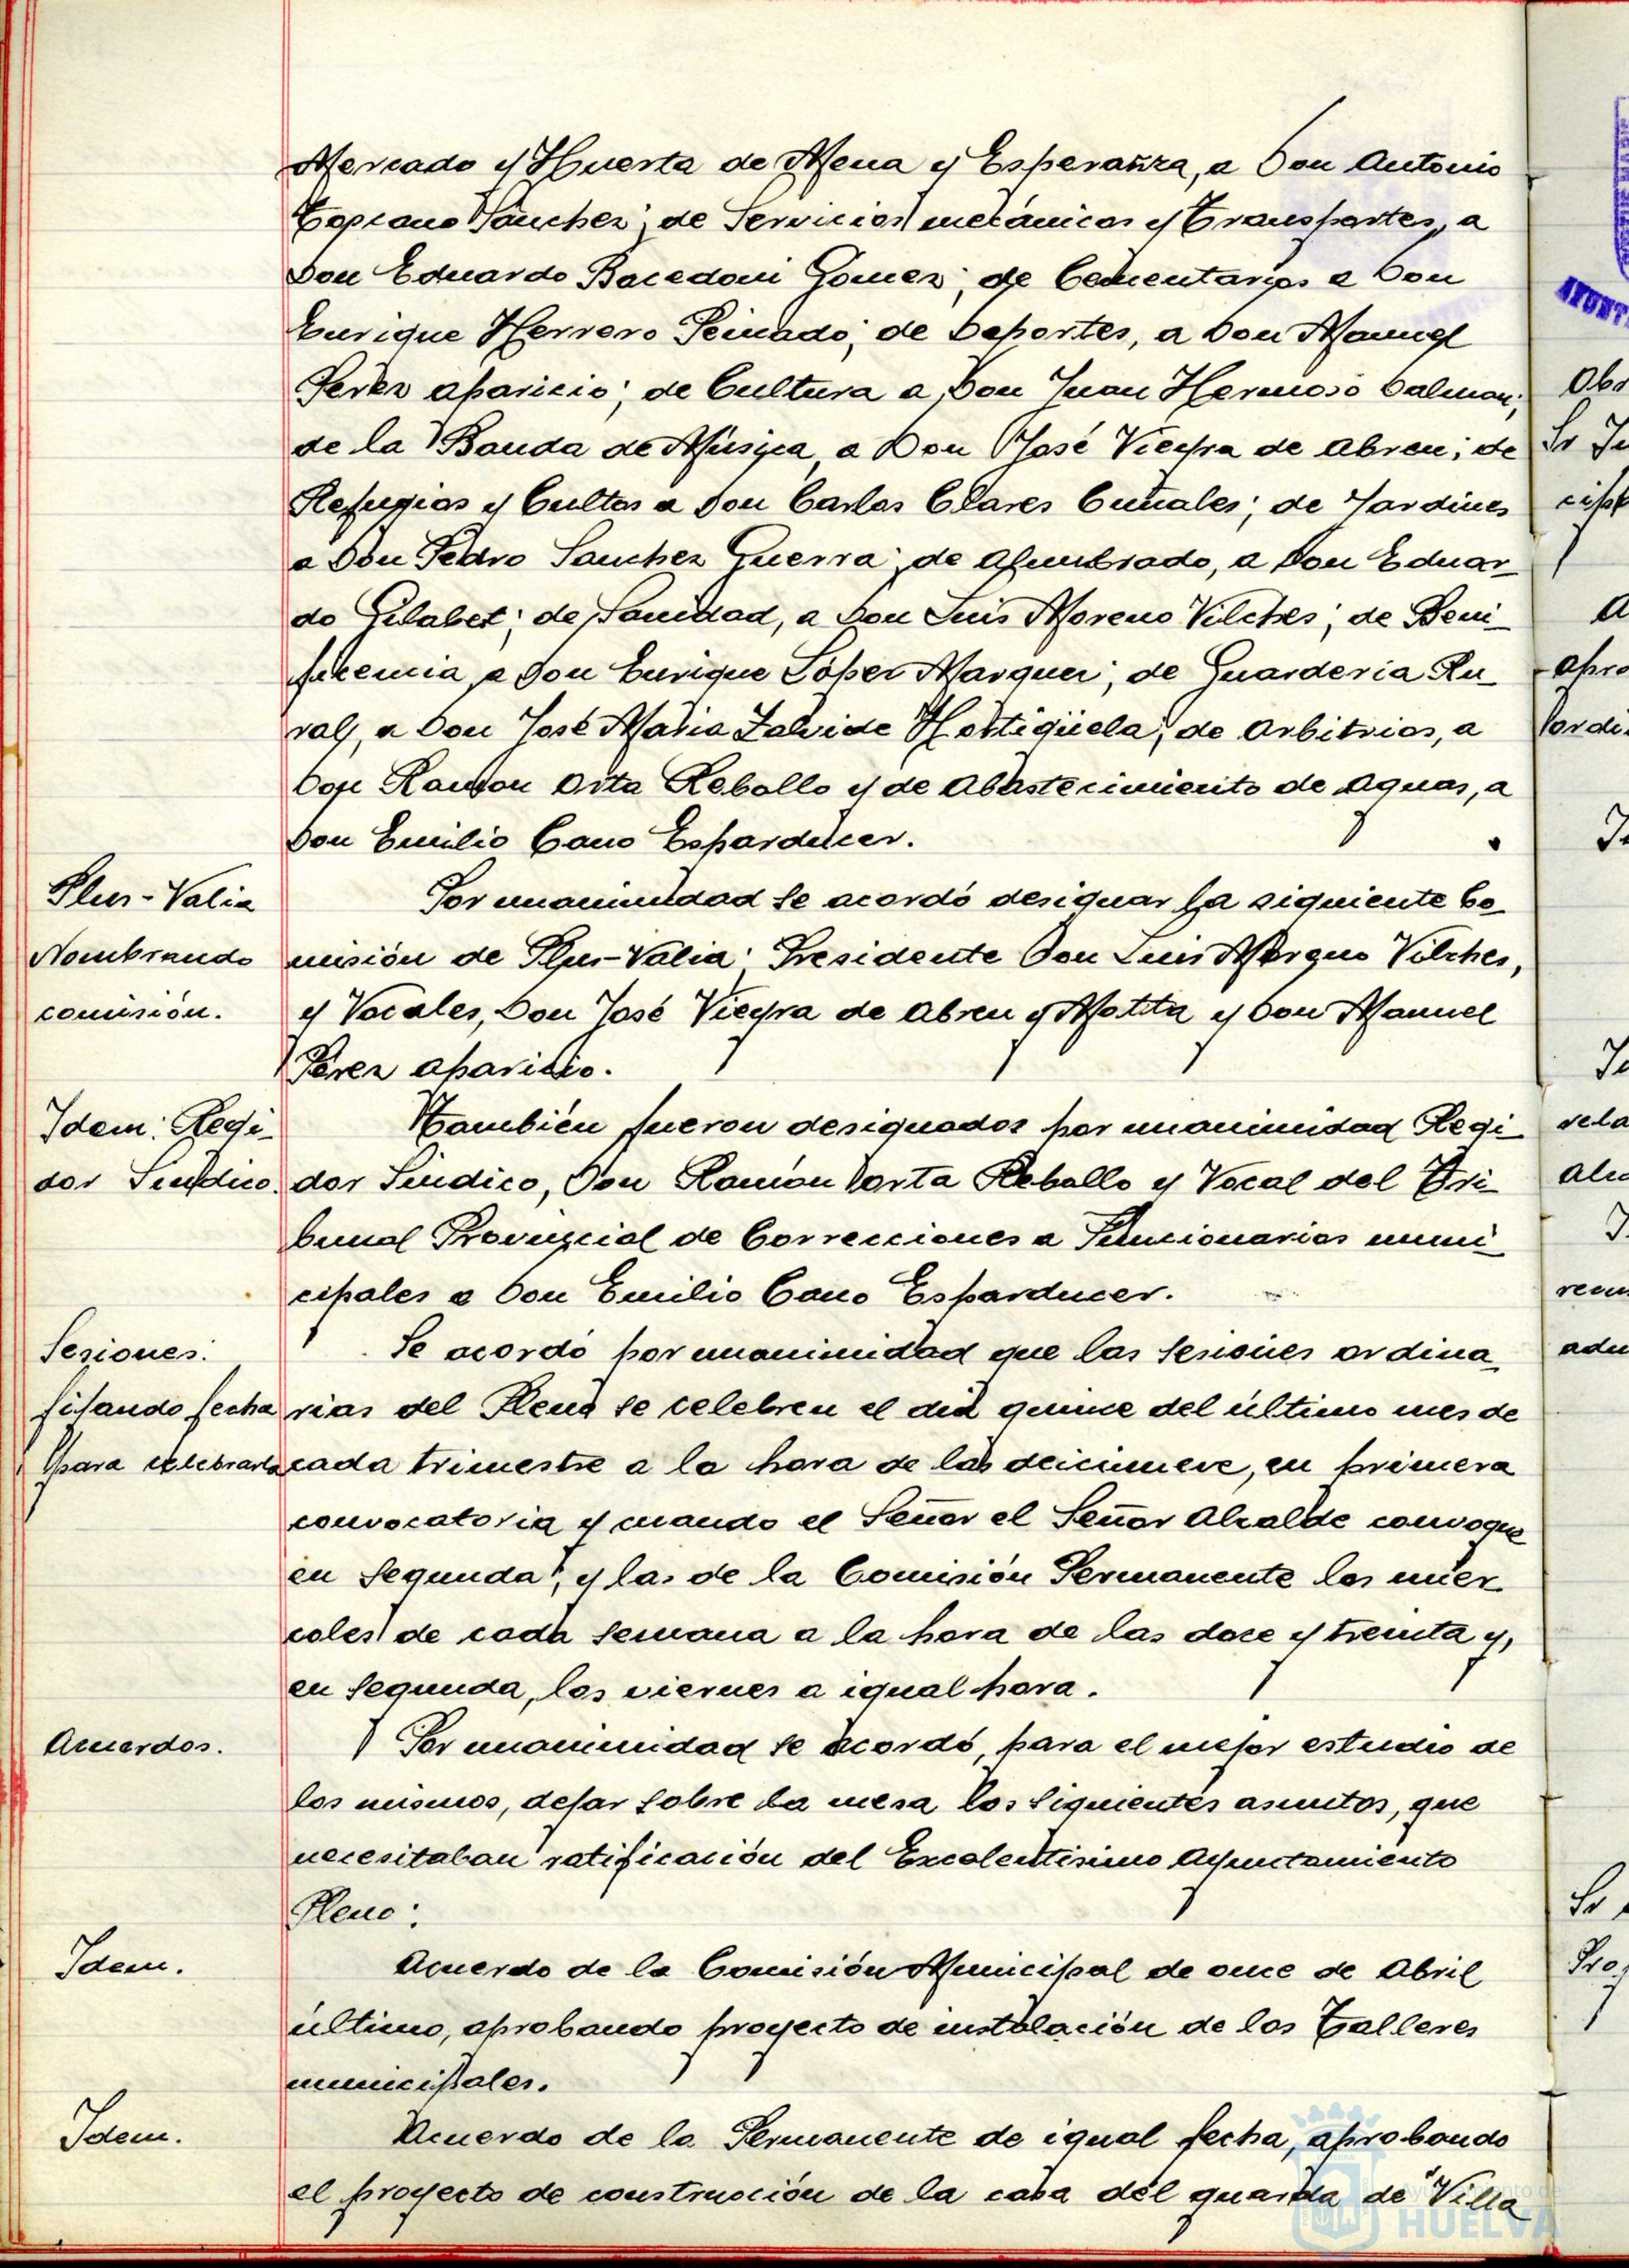 Mercado y Huerta de Mena y Esperanza, a Don Antonio
Toscano Sánchez; de Servicios mecánicos y Transportes, a
Don Eduardo Bacedoni Gómez; de Cementarios a Don
Enrique Herrero Peinado; de Deportes, a Don Manuel
Perez Aparicio; de Cultura a Don Juan Hermoso Dalmau;
de la Banda de Música, a Don José Vieyra de Abreu; de
Refugios y Cultos a Don Carlos Clares Cuñales; de Jardines
a Don Pedro Sanchez Guerra; de Alumbrado, a Don Eduar-
do Gilabet; de Sanidad, a Don Luis Moreno Vilches; de Beni-
ficencia, a Don Enrique López Marquez; de Guarderia Ru-
ral, a Don José Maria Zalvide Hortigüela; de Arbitrios, a
Don Ramon Orta Rebollo y de Abastecimiento de Aguas, a
Don Emilio Cano Esparducer.
Plus-Valia
Nombrando
comisión.
Por unanimidad se acordó designar la siguiente Co-
misión de Plus-Valia: Presidente Don Luis Moreno Vilches,
y Vocales, Don José Vieyra de Abreu y Motta y Don Manuel
Pérez Aparicio.
Idem: Regi-
dor Sindico.
También fueron designados por unanimidad Regi-
dor Sindico, Don Ramón Orta Rebollo y Vocal del Tri-
bunal Provincial de Correcciones a Funcionarios muni-
cipales a Don Emilio Cano Esparducer.
Sesiones:
fijando fecha
para celebrarla
Se acordó por unanimidad que las sesiones ordina-
rias del Pleno se celebren el dia quince del último mes de
cada trimestre a la hora de las deicinueve, en primera
convocatoria y cuando el Señor el Señor Alcalde convoque
en segunda; y las de la Comisión Permanente los miér-
coles de cada semana a la hora de las doce y treinta y,
en segunda, los viernes a igual hora.
Acuerdos.
Por unanimidad se acordó, para el mejor estudio de
los mismos, dejar sobre la mesa los siguientes asuntos, que
necesitaban ratificación del Excelentisimo Ayuntamiento
Pleno:
Idem.
Acuerdo de la Comisión Municipal de once de Abril
último, aprobando proyecto de instalación de los Talleres
municipales.
Idem.
Acuerdo de la Permanente de igual fecha, aprobando
el proyecto de construcción de la casa del guarda de "Villa
Ayuntamiento de
HUELVA